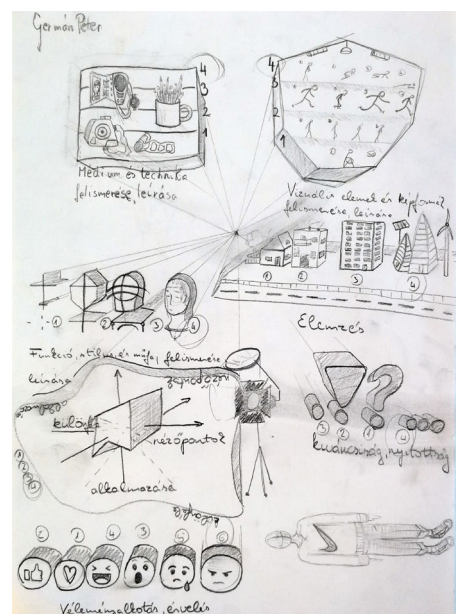 Germán Péter
4
3
2
1
Médium és technika
felismerése, leírása
4
3
2
1
Vizuális elemek és képformák
felismerése, leírása
1
2
3
4
1
2
3
4
Funkció, stílus és műfaj felismerése
leírása
különféle
nézőpontok
alkalmazása
1
2
3
4
Elemzés
3
2
1
4
kíváncsiság, nyitottság
2
1
4
3
5
6
Véleményalkotás, érvelés